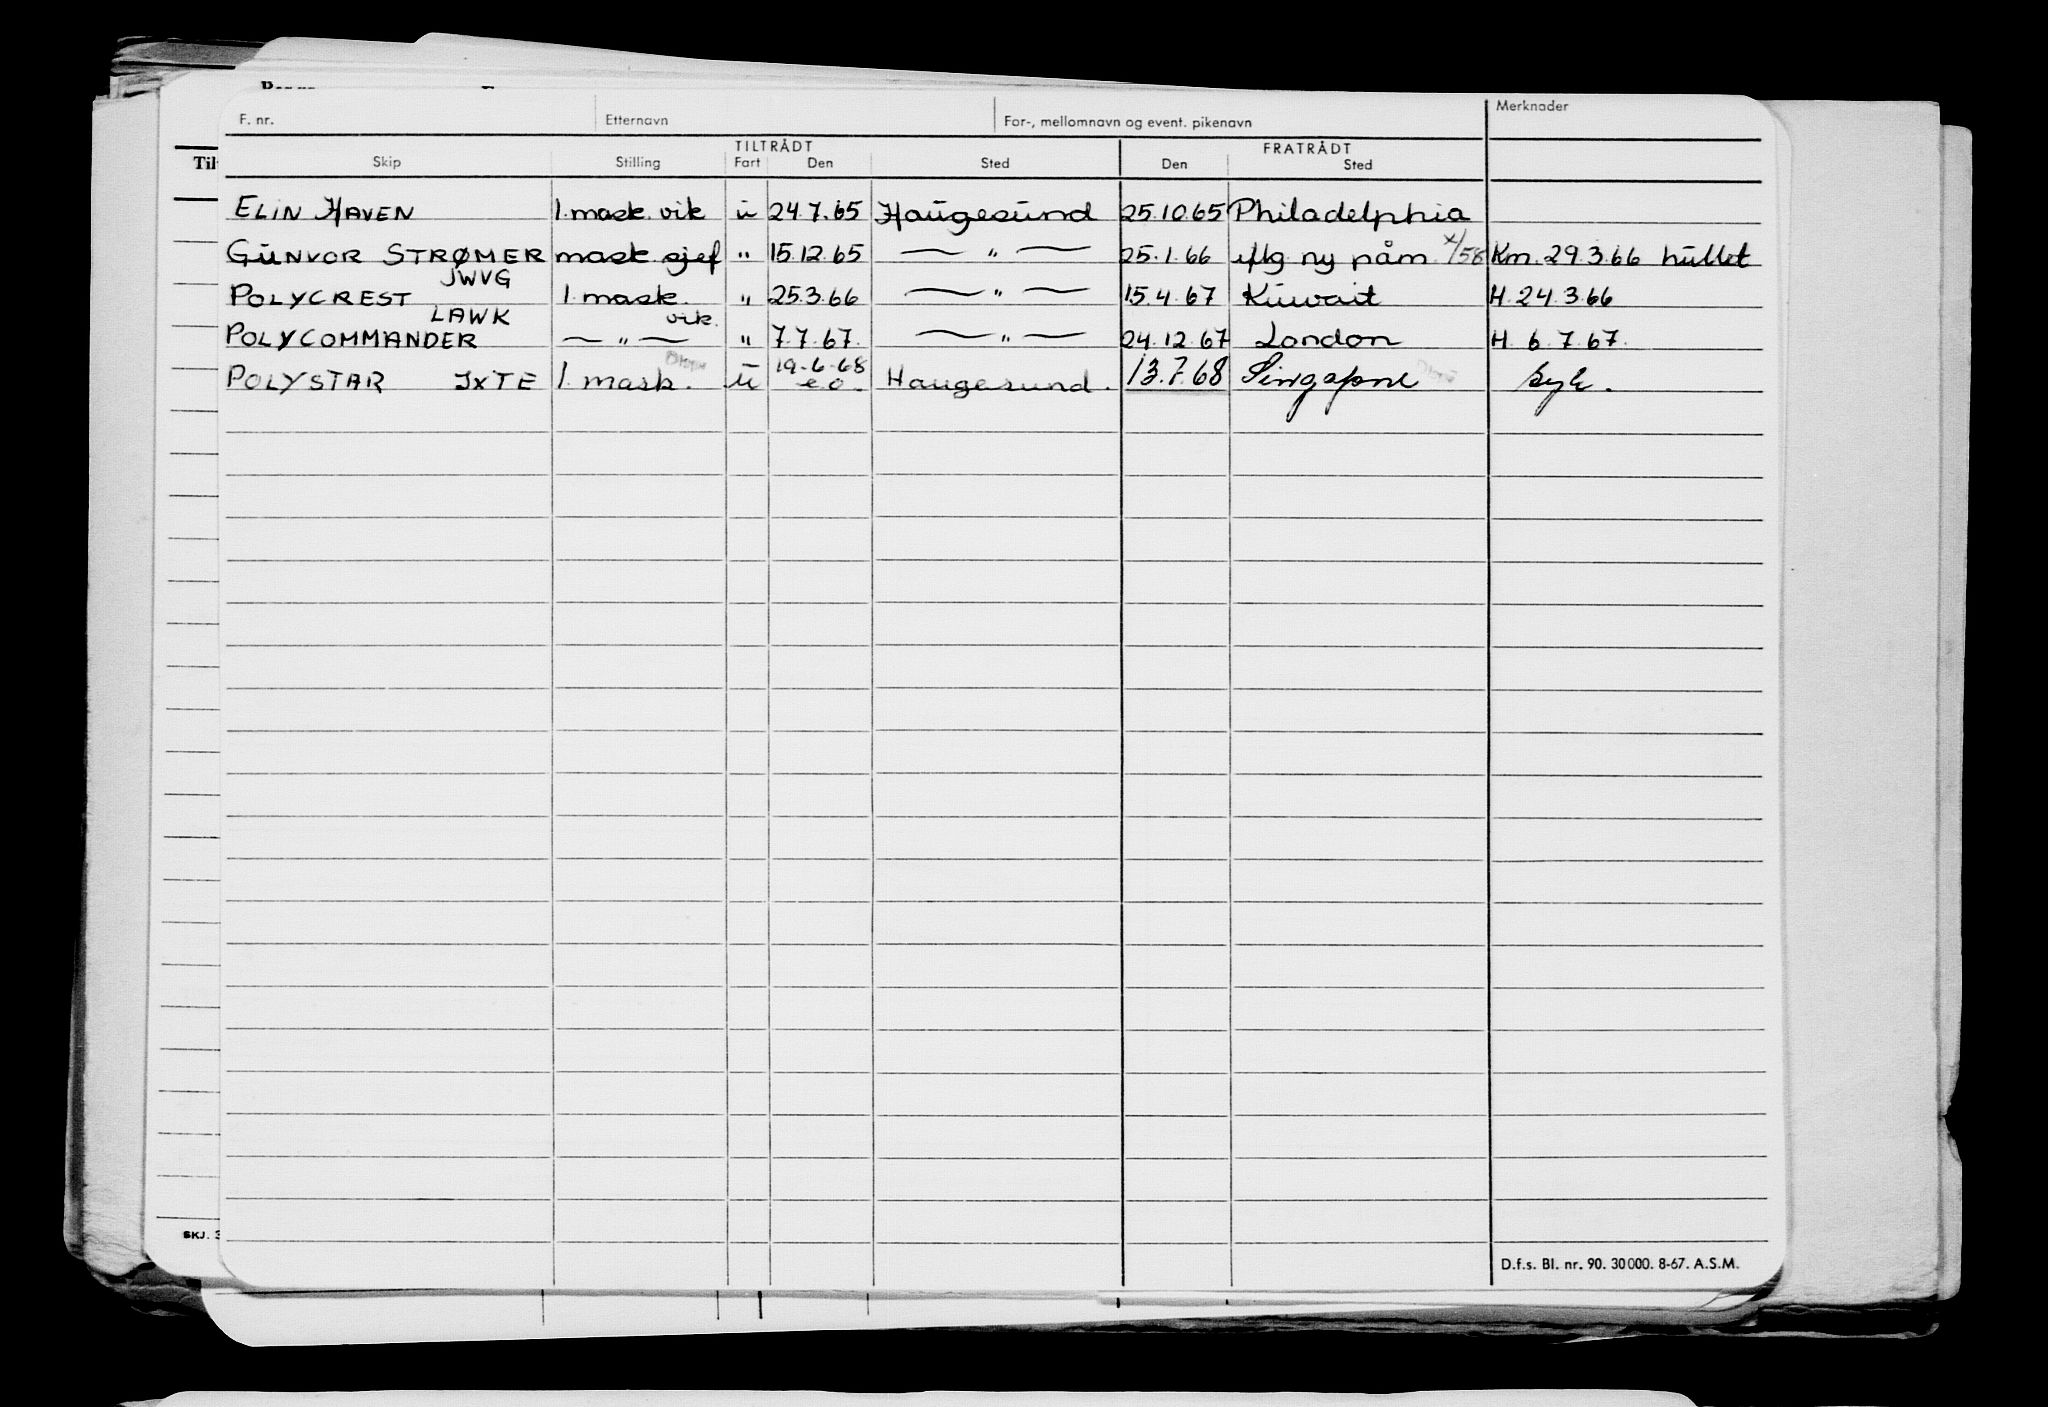 F. nr. Etternavn For-, mellomnavn og event. pikenavn Merknader
TILTRÅDT FRATRÅDT
Til Skip Stilling Fart Den Sted Den Sted
ELIN HAVEN 1. mask. vik u 24.7.65 Haugesund 25.10.65 Philadelphia
GUNVOR STRØMER mask sjef " 15.12.65 — " — 25.1.66 iflg ny påm. x/58 Km. 29.3.66 hullet
JWVG
POLYCREST 1 mask. " 25.3.66 — " — 15.4.67 Kuwait H. 24.3.66
LAWK vik.
POLYCOMMANDER — " — " 7.7.67. — " — 24.12.67 London H. 6.7.67.
19.6.68
POLYSTAR JXTE 1. mask. u e.o. Haugesund. 13.7.68 Singapore syk.
SKJ. 3
D.f.s. Bl. nr. 90. 30000. 8-67. A.S.M.